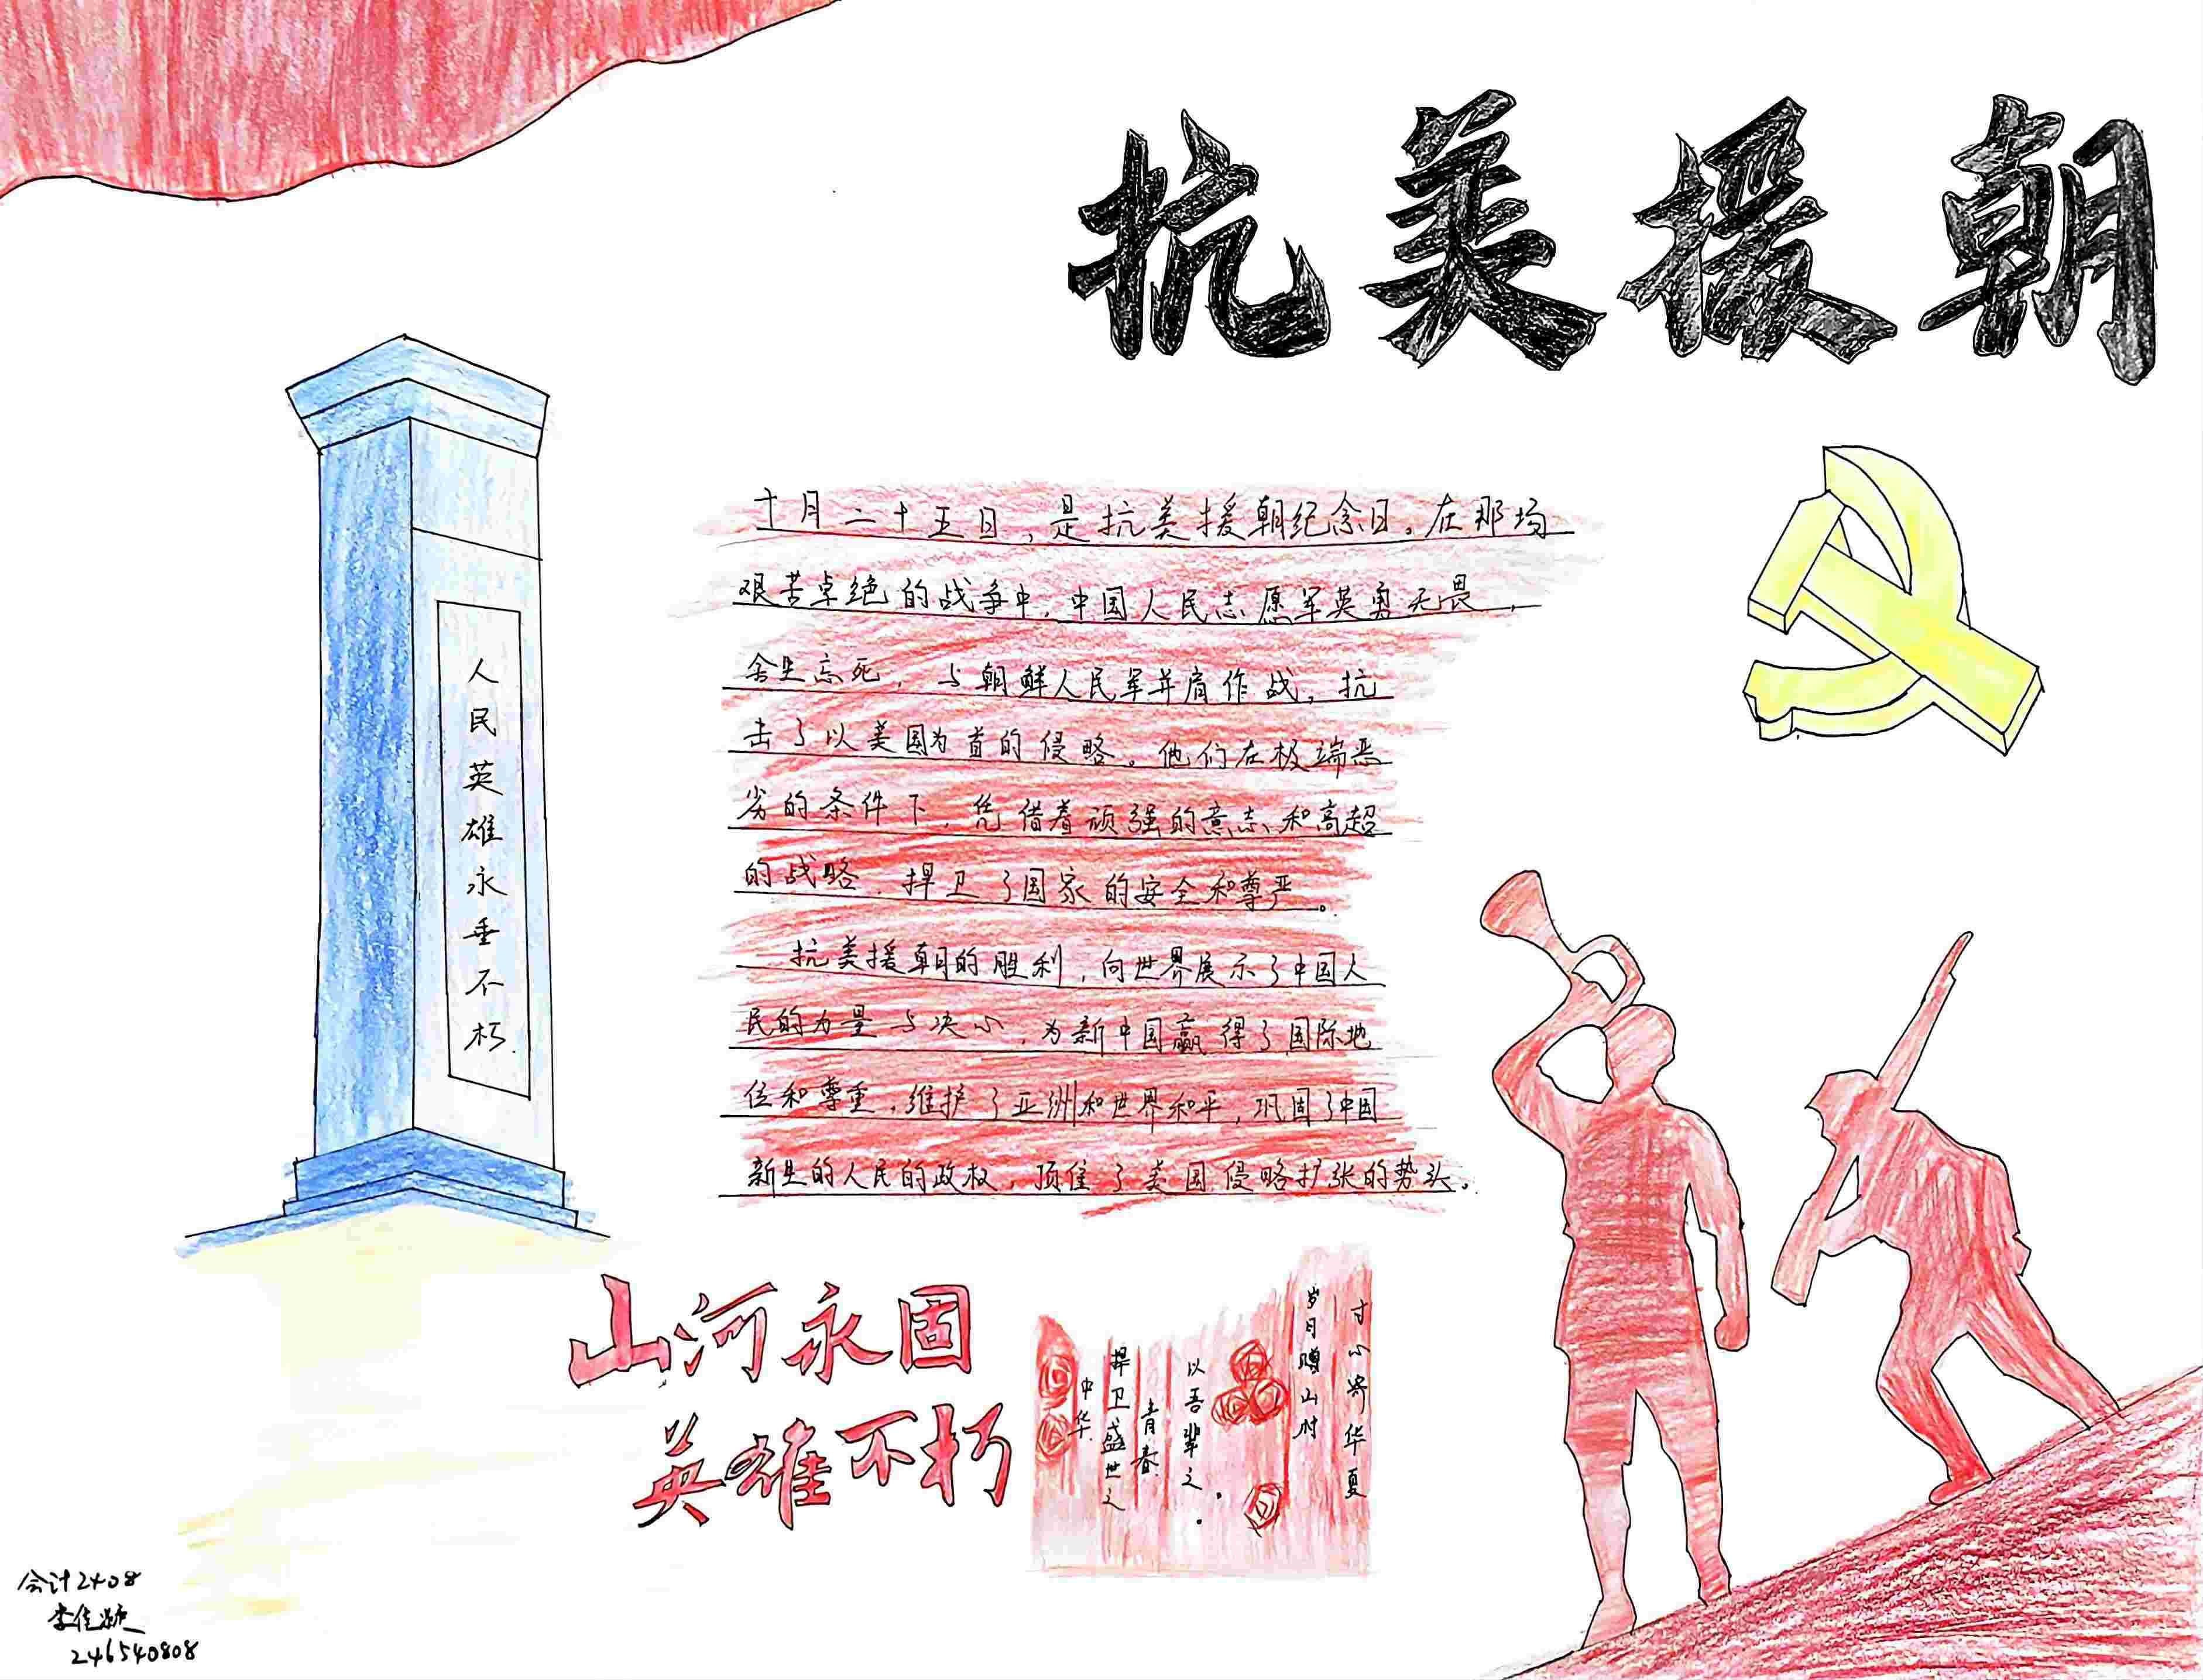 抗美援朝
十月二十五日，是抗美援朝纪念日。在那场
艰苦卓绝的战争中，中国人民志愿军英勇无畏，
舍生忘死，与朝鲜人民军并肩作战，抗
击了以美国为首的侵略。他们在极端恶
劣的条件下，凭借着顽强的意志和高超
的战略，捍卫了国家的安全和尊严。
抗美援朝的胜利，向世界展示了中国人
民的力量与决心，为新中国赢得了国际地
位和尊重，维护了亚洲和世界和平，巩固了中国
新生的人民的政权，顶住了美国侵略扩张的势头。
人民英雄永垂不朽
山河永固
英雄不朽
寸心寄华夏
岁月赠山河
以吾辈之
青春
捍卫盛世之
中华
会计2408
李佳颖
246540808